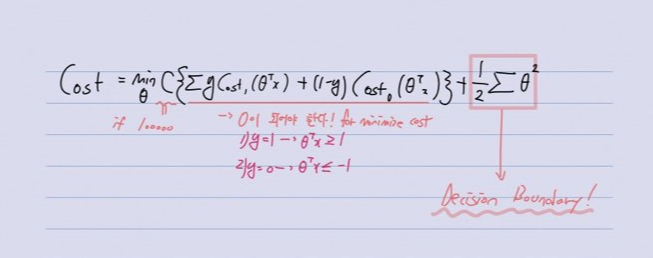 Cost = min θ C{Σ y Cost₁ (θᵀx) + (1-y) Cost₀ (θᵀx)} + 1/2 Σ θ²
if 100000
→ 0이 되어야 한다! for minimize cost
1) y=1 → θᵀx ≥ 1
2) y=0 → θᵀx ≤ -1
Decision Boundary!